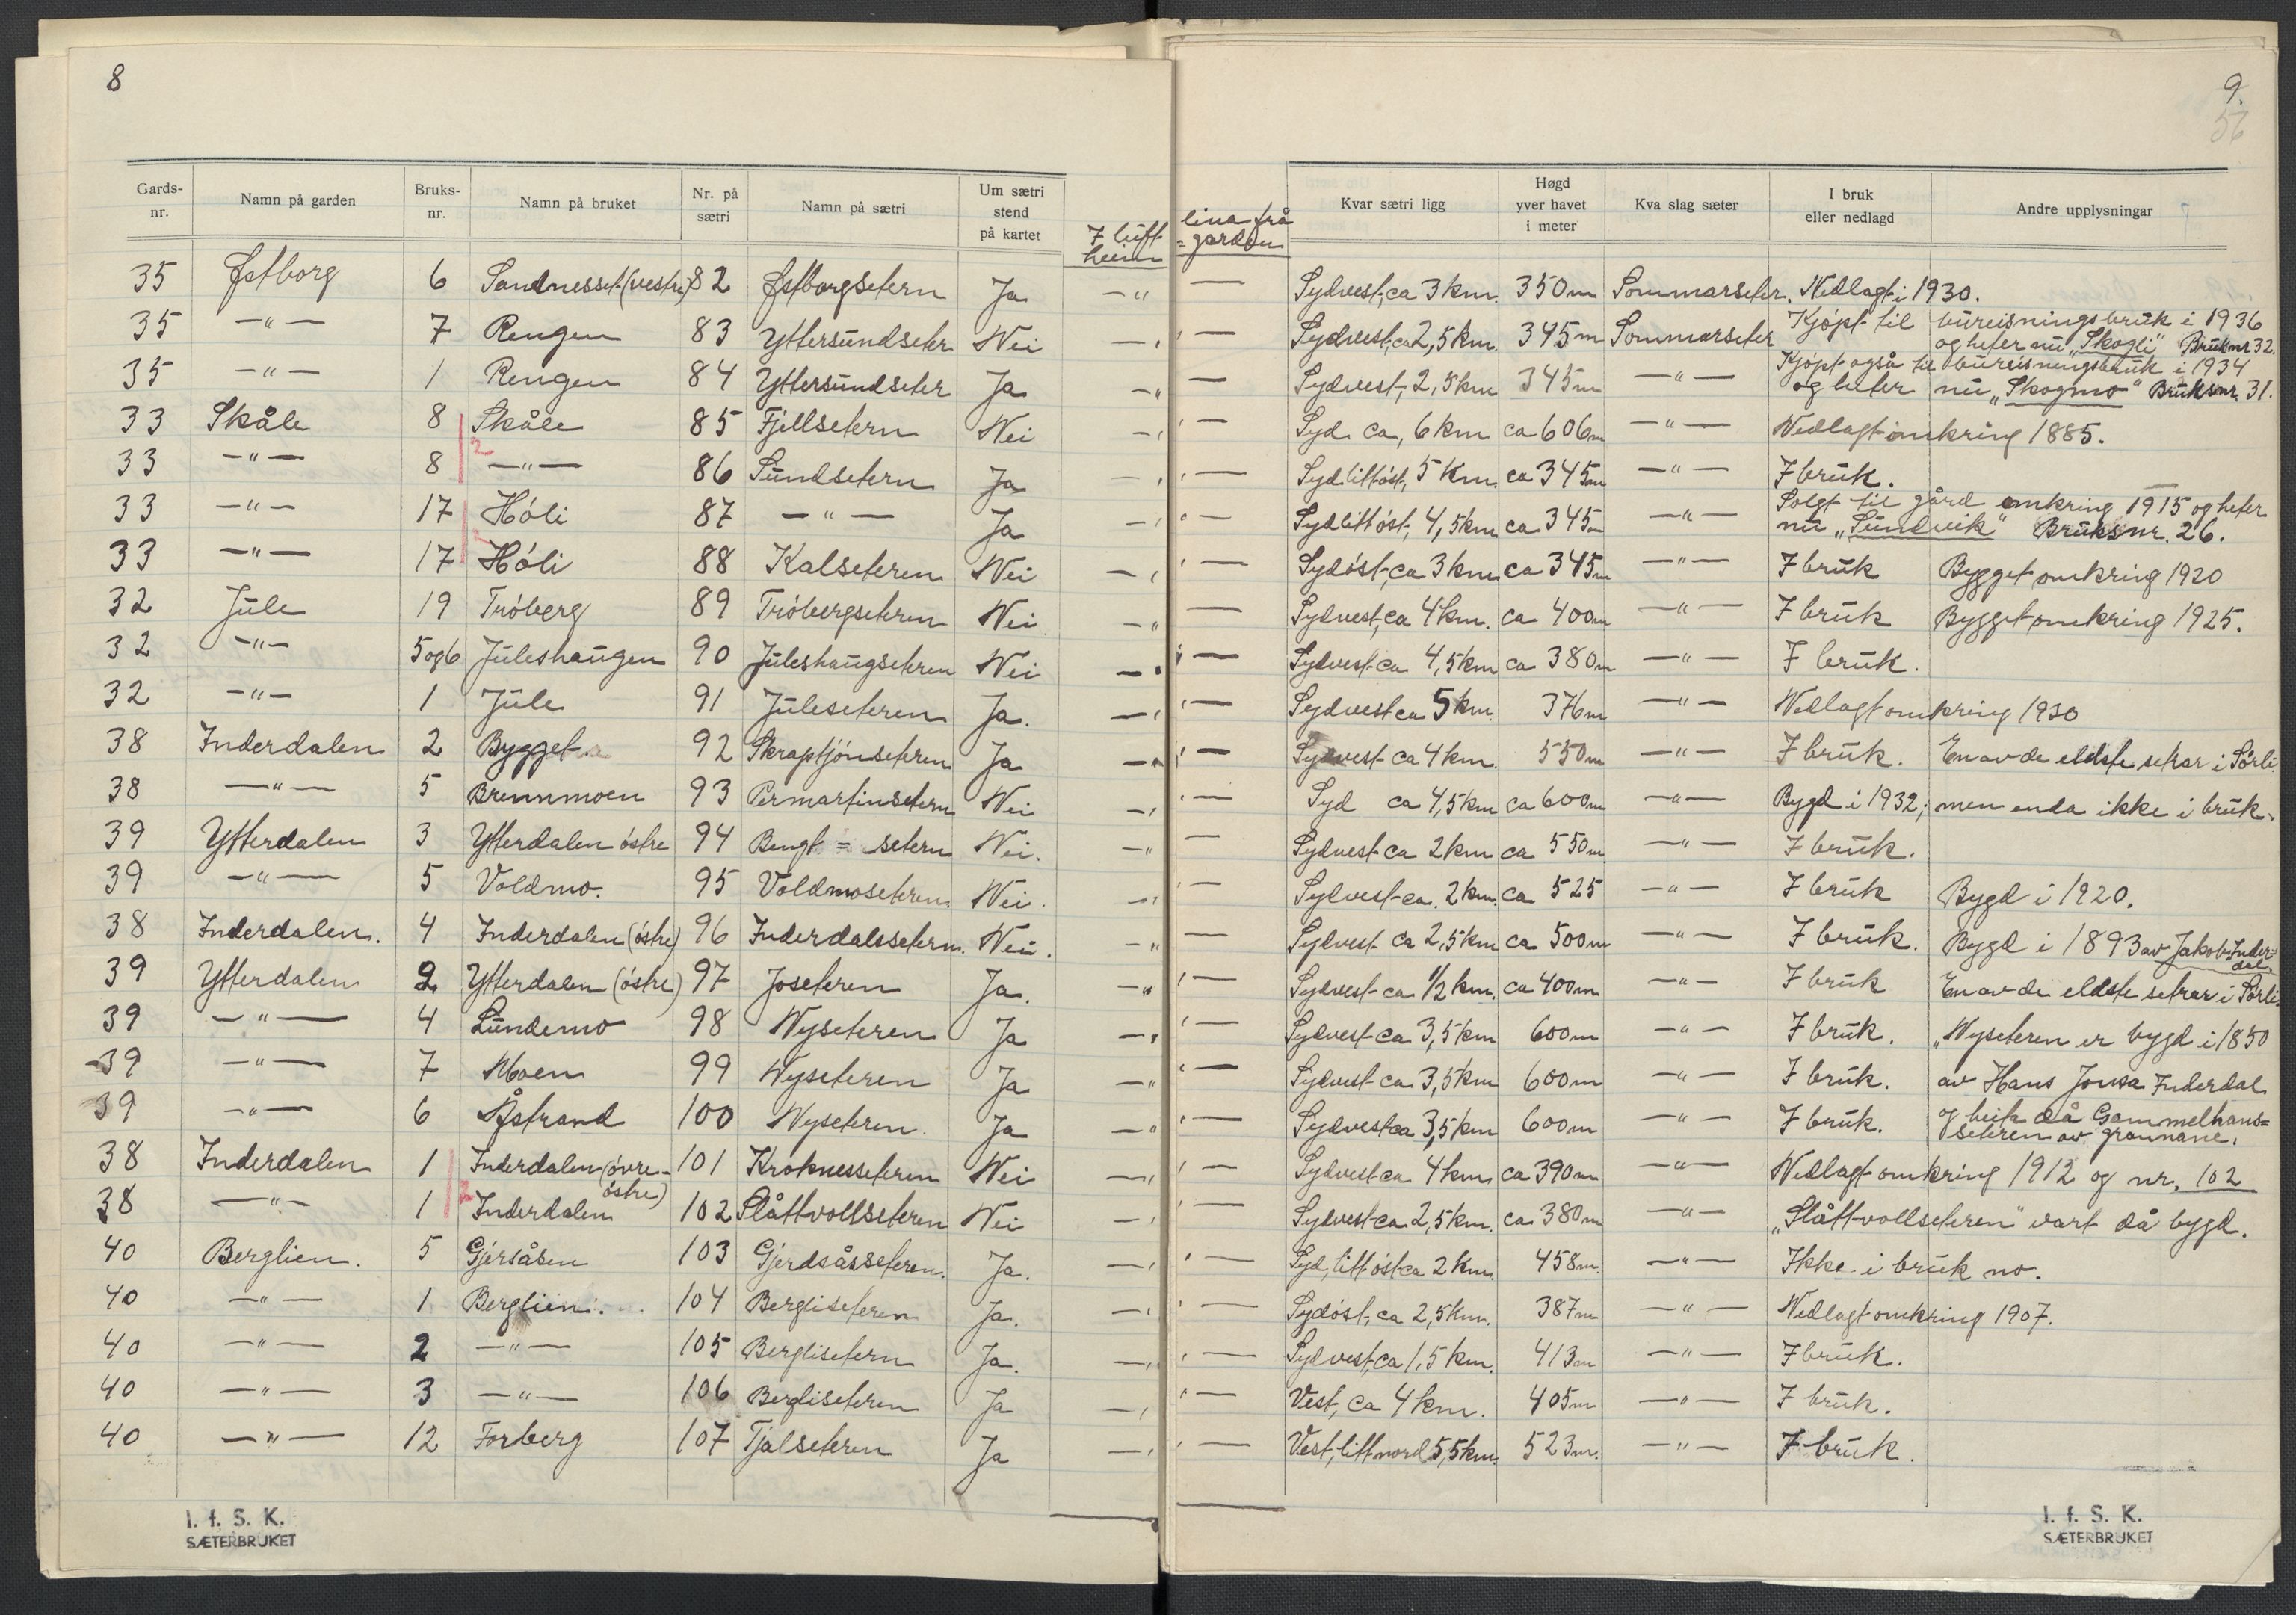 8
9.
56
Gards-nr. | Namn på garden | Bruks-nr. | Namn på bruket | Nr. på sætri | Namn på sætri | Um sætri stend på kartet | I luft- lina frå heim=garden | Kvar sætri ligg | Høgd yver havet i meter | Kva slag sæter | I bruk eller nedlagd | Andre upplysningar
35 | Østborg | 6 | Sandnesset (vestre) | 82 | Østborgsetern | Ja | —"— | Sydvest, ca 3 km. | 350 m | Sommarseter. | Nedlagt i 1930.
35 | —"— | 7 | Rengen | 83 | Yttersundseter | Nei | —"— | Sydvest, ca 2,5 km. | 345 m | Sommarseter | Kjøpt til bureisningsbruk i 1936 og heter nu „Skogli" Bruknr 32.
35 | —"— | 1 | Rengen | 84 | Yttersundseter | Ja | —"— | Sydvest, 2,5 km | 345 m | —"— | Kjøpt også til bureisningsbruk i 1934 og heter nu „Skogmo" Bruksnr. 31.
33 | Skåle | 8 | Skåle | 85 | Fjellsetern | Nei | —"— | Syd. ca, 6 km | ca 606 m | —"— | Nedlagt omkring 1885.
33 | —"— | 8 | —"— | 86 | Sundsetern | Ja | —"— | Syd litt øst, 5 km. | ca 345 m | —"— | I bruk.
33 | —"— | 17 | Hóli | 87 | —"— | Ja | —"— | Syd litt øst, 4,5 km | ca 345 m | —"— | Solgt til gård omkring 1915 og heter nu „Sundvik" Bruksnr. 26.
33 | —"— | 17 | Hóli | 88 | Kalseteren | Nei | —"— | Sydøst, ca 3 km | ca 345 m | —"— | I bruk | Bygget omkring 1920
32 | Jule | 19 | Tróberg | 89 | Tróbergseteren | Nei | —"— | Sydvest, ca 4 km. | ca 400 m | —"— | I bruk | Bygget omkring 1925.
32 | —"— | 5 og 6 | Juleshaugen | 90 | Juleshaugseteren | Nei | —"— | Sydvest ca 4,5 km | ca 380 m | —"— | I bruk.
32 | —"— | 1 | Jule | 91 | Juleseteren | Ja. | —"— | Sydvest ca 5 km. | 376 m | —"— | Nedlagt omkring 1930
38 | Inderdalen | 2 | Bygget | 92 | Skraptjönseteren | Ja | —"— | Sydvest ca 4 km. | 550 m | —"— | I bruk. | En av de eldste setrar i Sørli.
38 | —"— | 5 | Brennmoen | 93 | Permartinsetern | Nei | —"— | Syd ca 4,5 km | ca 600 m | —"— | Bygd i 1932, men enda ikke i bruk.
39 | Ytterdalen | 3 | Ytterdalen östre | 94 | Bengt = setern | Nei. | —"— | Sydvest ca 2 km | ca 550 m | —"— | I bruk.
39 | —"— | 5 | Voldmo. | 95 | Voldmoseteren. | Nei. | —"— | Sydvest ca. 2 km. | ca 525 | —"— | I bruk | Bygd i 1920.
38 | Inderdalen. | 4 | Inderdalen (östre) | 96 | Inderdalssetern. | Nei. | —"— | Sydvest ca 2,5 km | ca 500 m | —"— | I bruk. | Bygd i 1893 av Jakob Inder=dal.
39 | Ytterdalen | 2 | Ytterdalen (östre) | 97 | Joseteren | Ja. | —"— | Sydvest ca 1/2 km. | ca 400 m | —"— | I bruk | En av de eldste setrar i Sørli.
39 | —"— | 4 | Lundemo | 98 | Nyseteren | Ja | —"— | Sydvest ca 3,5 km | 600 m | —"— | I bruk. | „Nyseteren er bygd i 1850
39 | —"— | 7 | Moen | 99 | Nyseteren | Ja | —"— | Sydvest ca 3,5 km | 600 m | —"— | I bruk. | av Hans Jonsa Inderdal
39 | —"— | 6 | Åstrand | 100 | Nyseteren. | Ja | —"— | Sydvest ca 3,5 km | 600 m | —"— | I bruk. | og heite då Gammelhans=seteren av grannane.
38 | Inderdalen | 1 | Inderdalen (övre-östre) | 101 | Kroknesseteren | Nei | —"— | Sydvest ca 4 km | ca 390 m | —"— | Nedlagt omkring 1912 og nr. 102
38 | —"— | 1 | Inderdalen | 102 | Slåttvollseteren | Nei | —"— | Sydvest ca 2,5 km. | ca 380 m | —"— | „Slåttvollseteren" vart då bygd.
40 | Berglien. | 5 | Gjersåsen | 103 | Gjerdsåsseteren. | Ja. | —"— | Syd, litt øst ca 2 km. | 458 m. | —"— | Ikke i bruk no.
40 | —"— | 1 | Berglien. | 104 | Bergliseteren | Ja. | —"— | Sydøst, ca 2,5 km. | 387 m | —"— | Nedlagt omkring 1907.
40 | —"— | 2 | —"— | 105 | Berglisetern | Ja. | —"— | Sydvest, ca 1,5 km. | 413 m | —"— | I bruk.
40 | —"— | 3 | —"— | 106 | Bergliseteren | Ja | —"— | Vest, ca 4 km. | 405 m | —"— | I bruk.
40 | —"— | 12 | Forberg | 107 | Tjalseteren | Ja | —"— | Vest, litt nord 5,5 km. | 523 m. | —"— | I bruk.
I. f. S. K.
SÆTERBRUKET
I. f. S. K.
SÆTERBRUKET